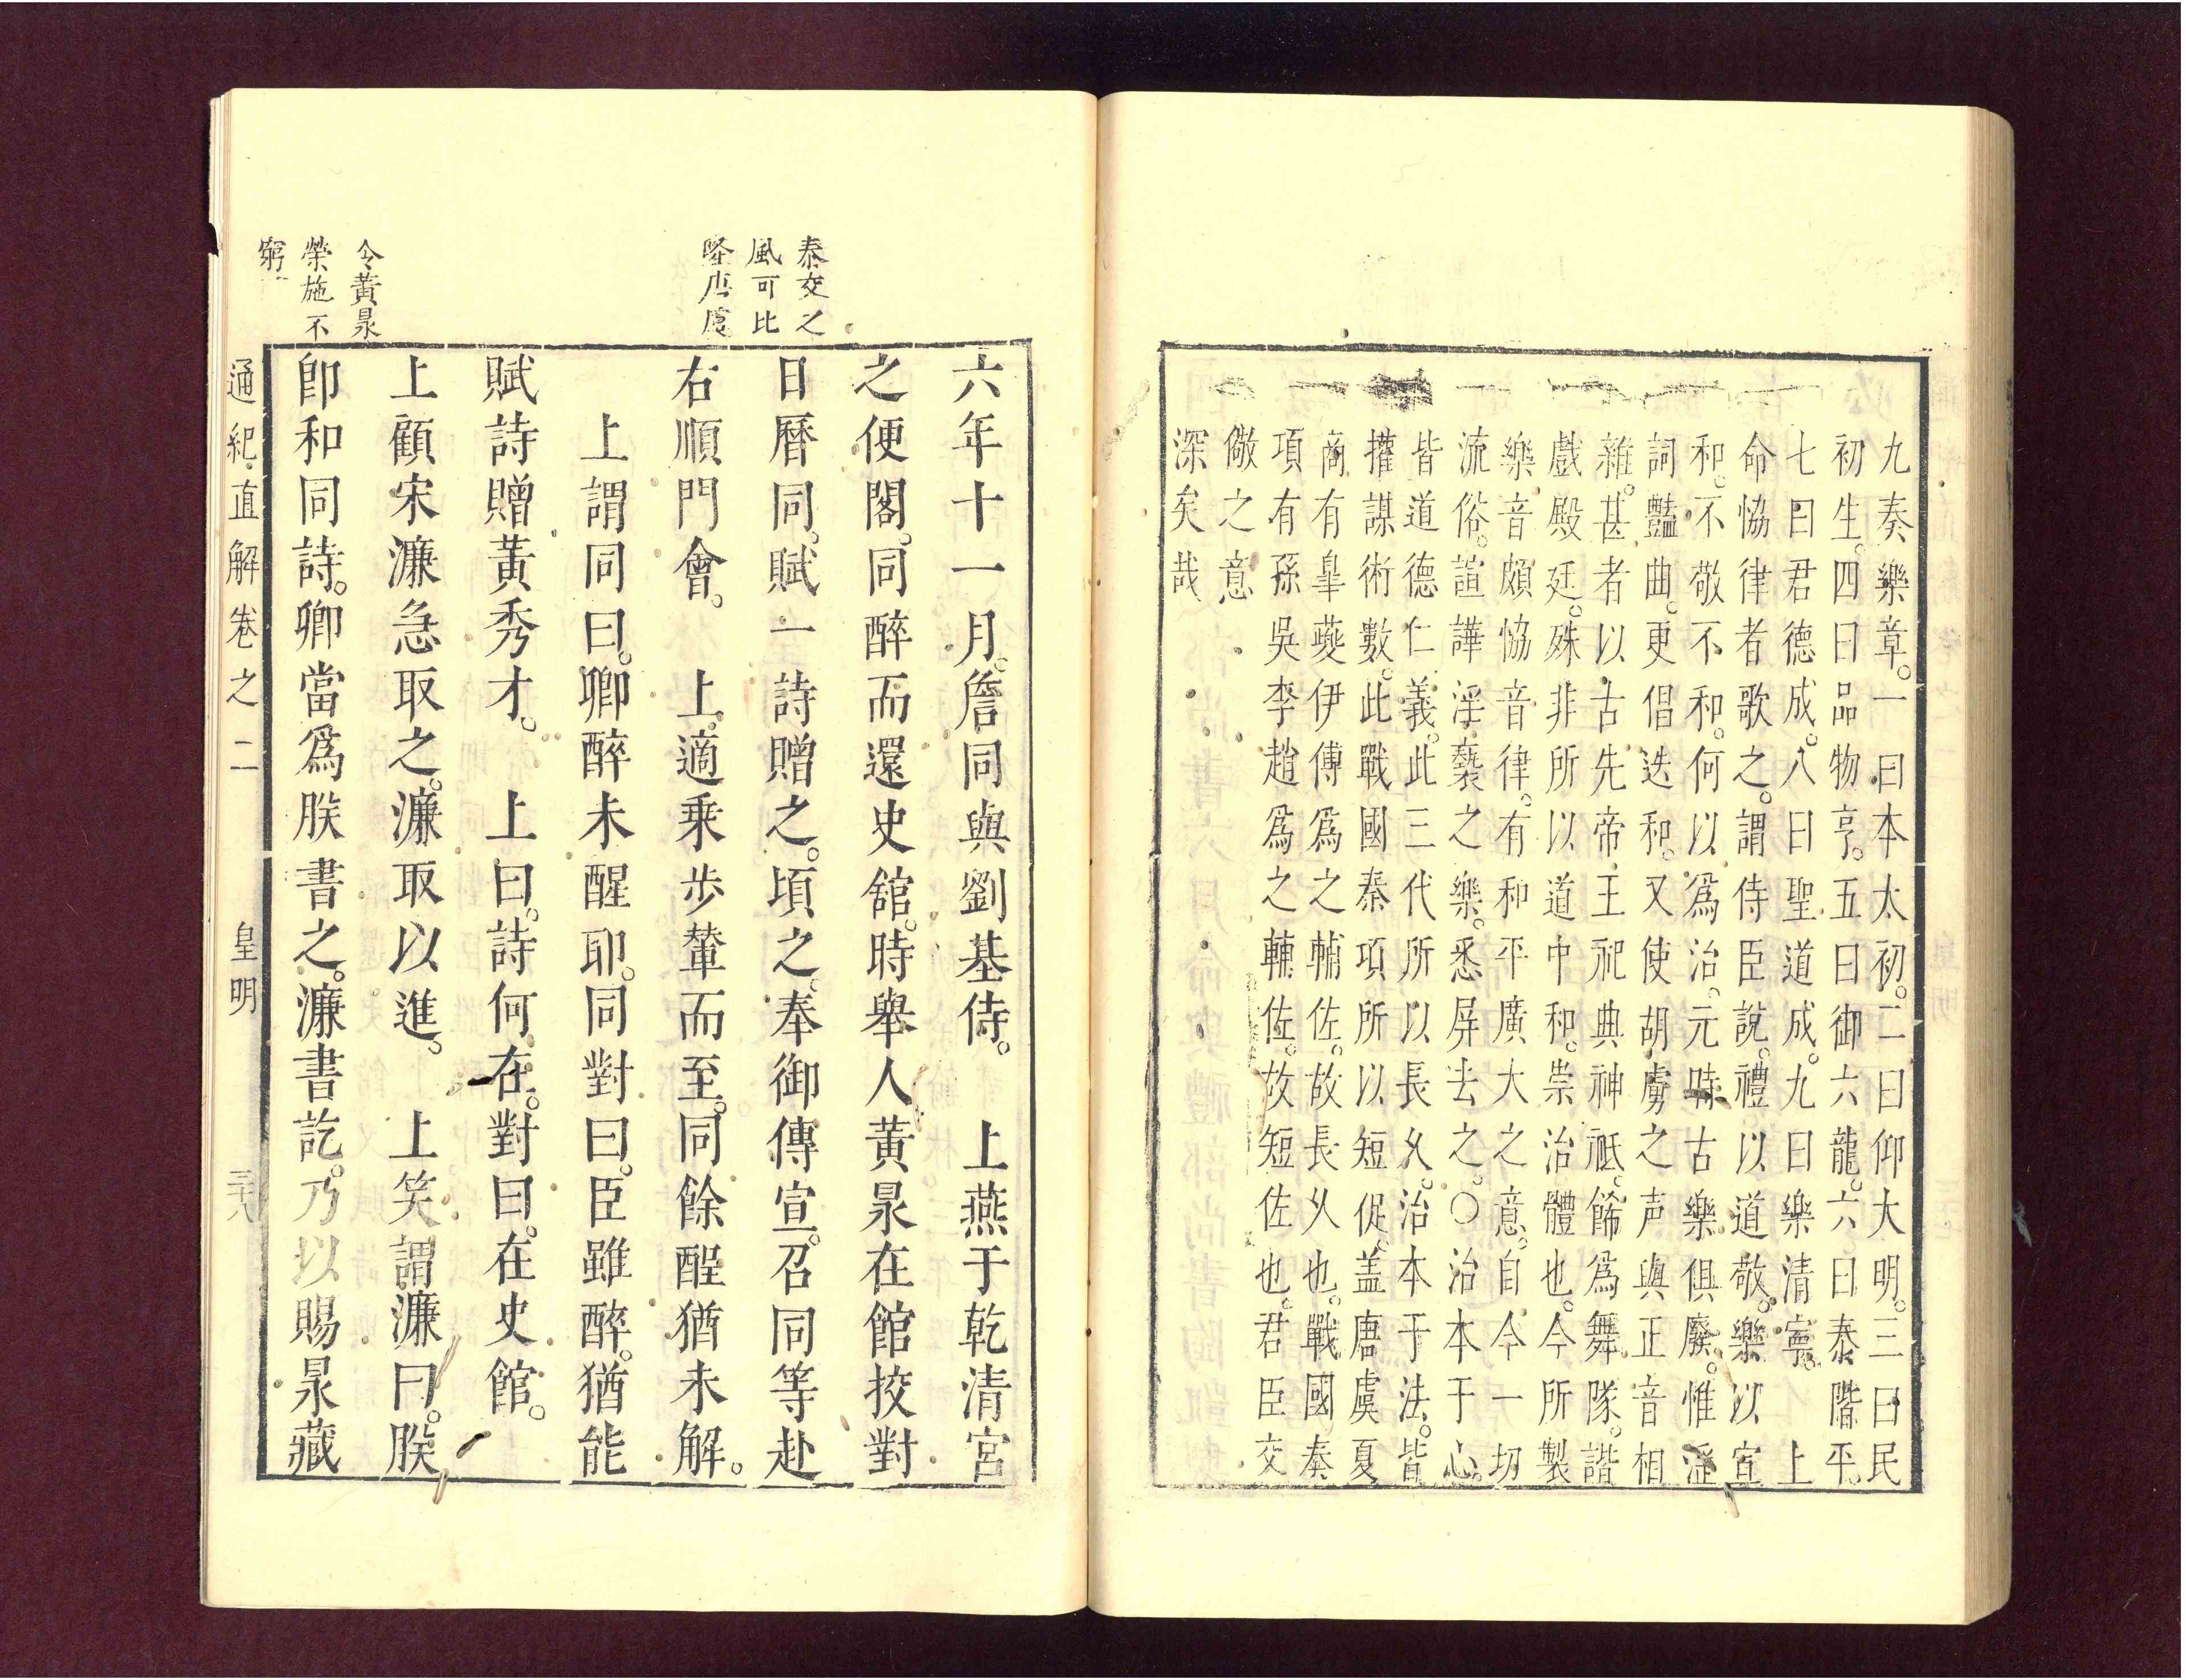 九奏樂章。一曰本太初。二曰仰大明。三曰民
初生。四曰品物亨。五曰御六龍。六曰泰階平。
七曰君德成。八曰聖道成。九曰樂清寧。　上
命恊律者歌之。謂侍臣說。禮以道敬。樂以宣
和。不敬不和。何以爲治。元時古樂俱廢。惟淫
詞豔曲。更倡迭和。又使胡虜之声與正音相
雜。甚者以古先帝王祀典神祗。餙爲舞隊。諧
戲殿廷。殊非所以道中和。崇治體也。今所製
樂音頗恊音律。有和平廣大之意。自今一切
流俗。諠譁淫䙝之樂。悉屏去之。○治本于心。
皆道德仁義。此三代所以長久。治本于法。皆
權謀術數。此戰國秦項所以短促。盖唐虞夏
商有皐夔伊傅爲之輔佐。故長乆也。戰國秦
項有孫吳李趙爲之輔佐。故短佐也。君臣交
儆之意
深矣哉
泰交之
風可比
隆唐虞
六年十一月。詹同與劉基侍。　上燕于乾清宮
之便閣。同醉而還史舘。時舉人黃㫤在館挍對
日曆同。賦一詩贈之。頃之。奉御傳宣。召同等赴
右順門會。　上。適乗步輦而至。同餘酲猶未解。
上謂同曰。卿醉未醒耶。同對曰。臣雖醉。猶能
賦詩贈黃秀才。　上曰。詩何在。對曰。在史館。
上顧宋濂急取之。濂取以進。　上笑謂濂曰。朕
卽和同詩。卿當爲朕書之。濂書訖。乃以賜㫤藏
令黃㫤
榮施不
窮
通紀直解卷之二　皇明　三十八